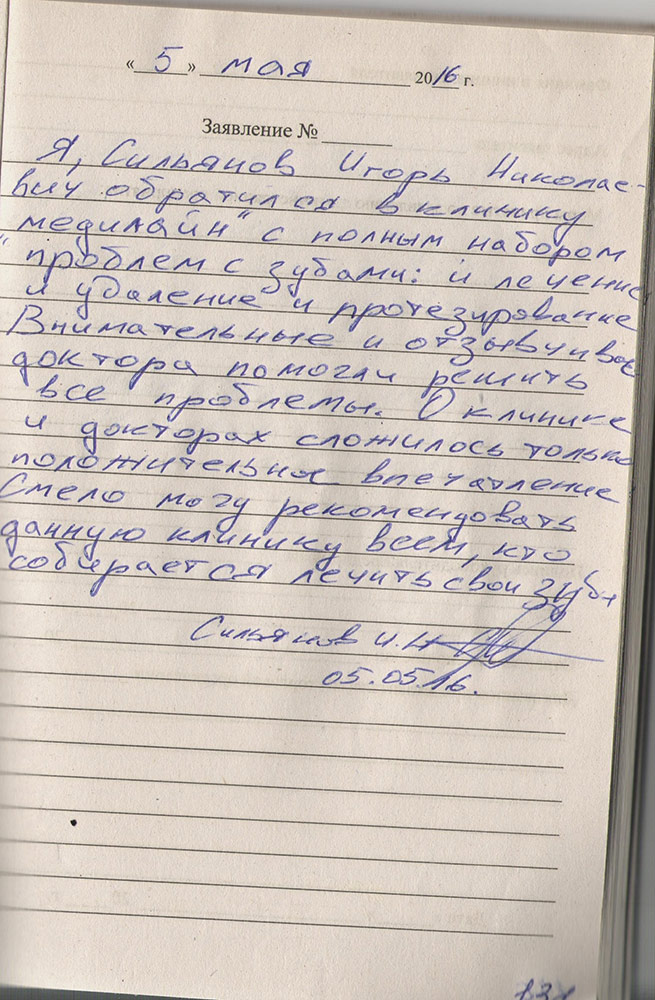 « 5 » мая 2016 г.
Заявление №
Я, Сильянов Игорь Николае-
вич обратился в клинику
медилайн" с полным набором
"проблем с зубами: и лечение
и удаление и протезирование
Внимательные и отзывчивые
доктора помогли решить
все проблемы. О клинике
и докторах сложилось только
положительное впечатление
Смело могу рекомендовать
данную клинику всем, кто
собирается лечить свои зубы
Сильянов И.Н.
05.05.16.